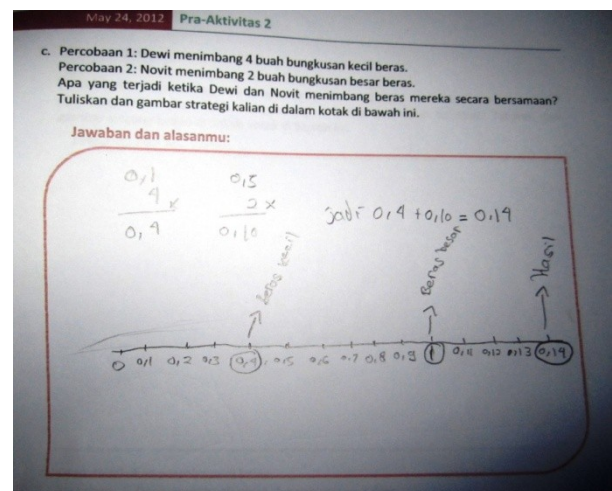 May 24, 2012 Pra-Aktivitas 2
c. Percobaan 1: Dewi menimbang 4 buah bungkusan kecil beras.
Percobaan 2: Novit menimbang 2 buah bungkusan besar beras.
Apa yang terjadi ketika Dewi dan Novit menimbang beras mereka secara bersamaan?
Tuliskan dan gambar strategi kalian di dalam kotak di bawah ini.
Jawaban dan alasanmu:
0,1
4 x
0,4
0,5
2 x
0,10
jadi 0,4 + 0,10 = 0,14
Beras kecil
Beras besar
Hasil
0 0,1 0,2 0,3 0,4 0,5 0,6 0,7 0,8 0,9 1 0,11 0,12 0,13 0,14